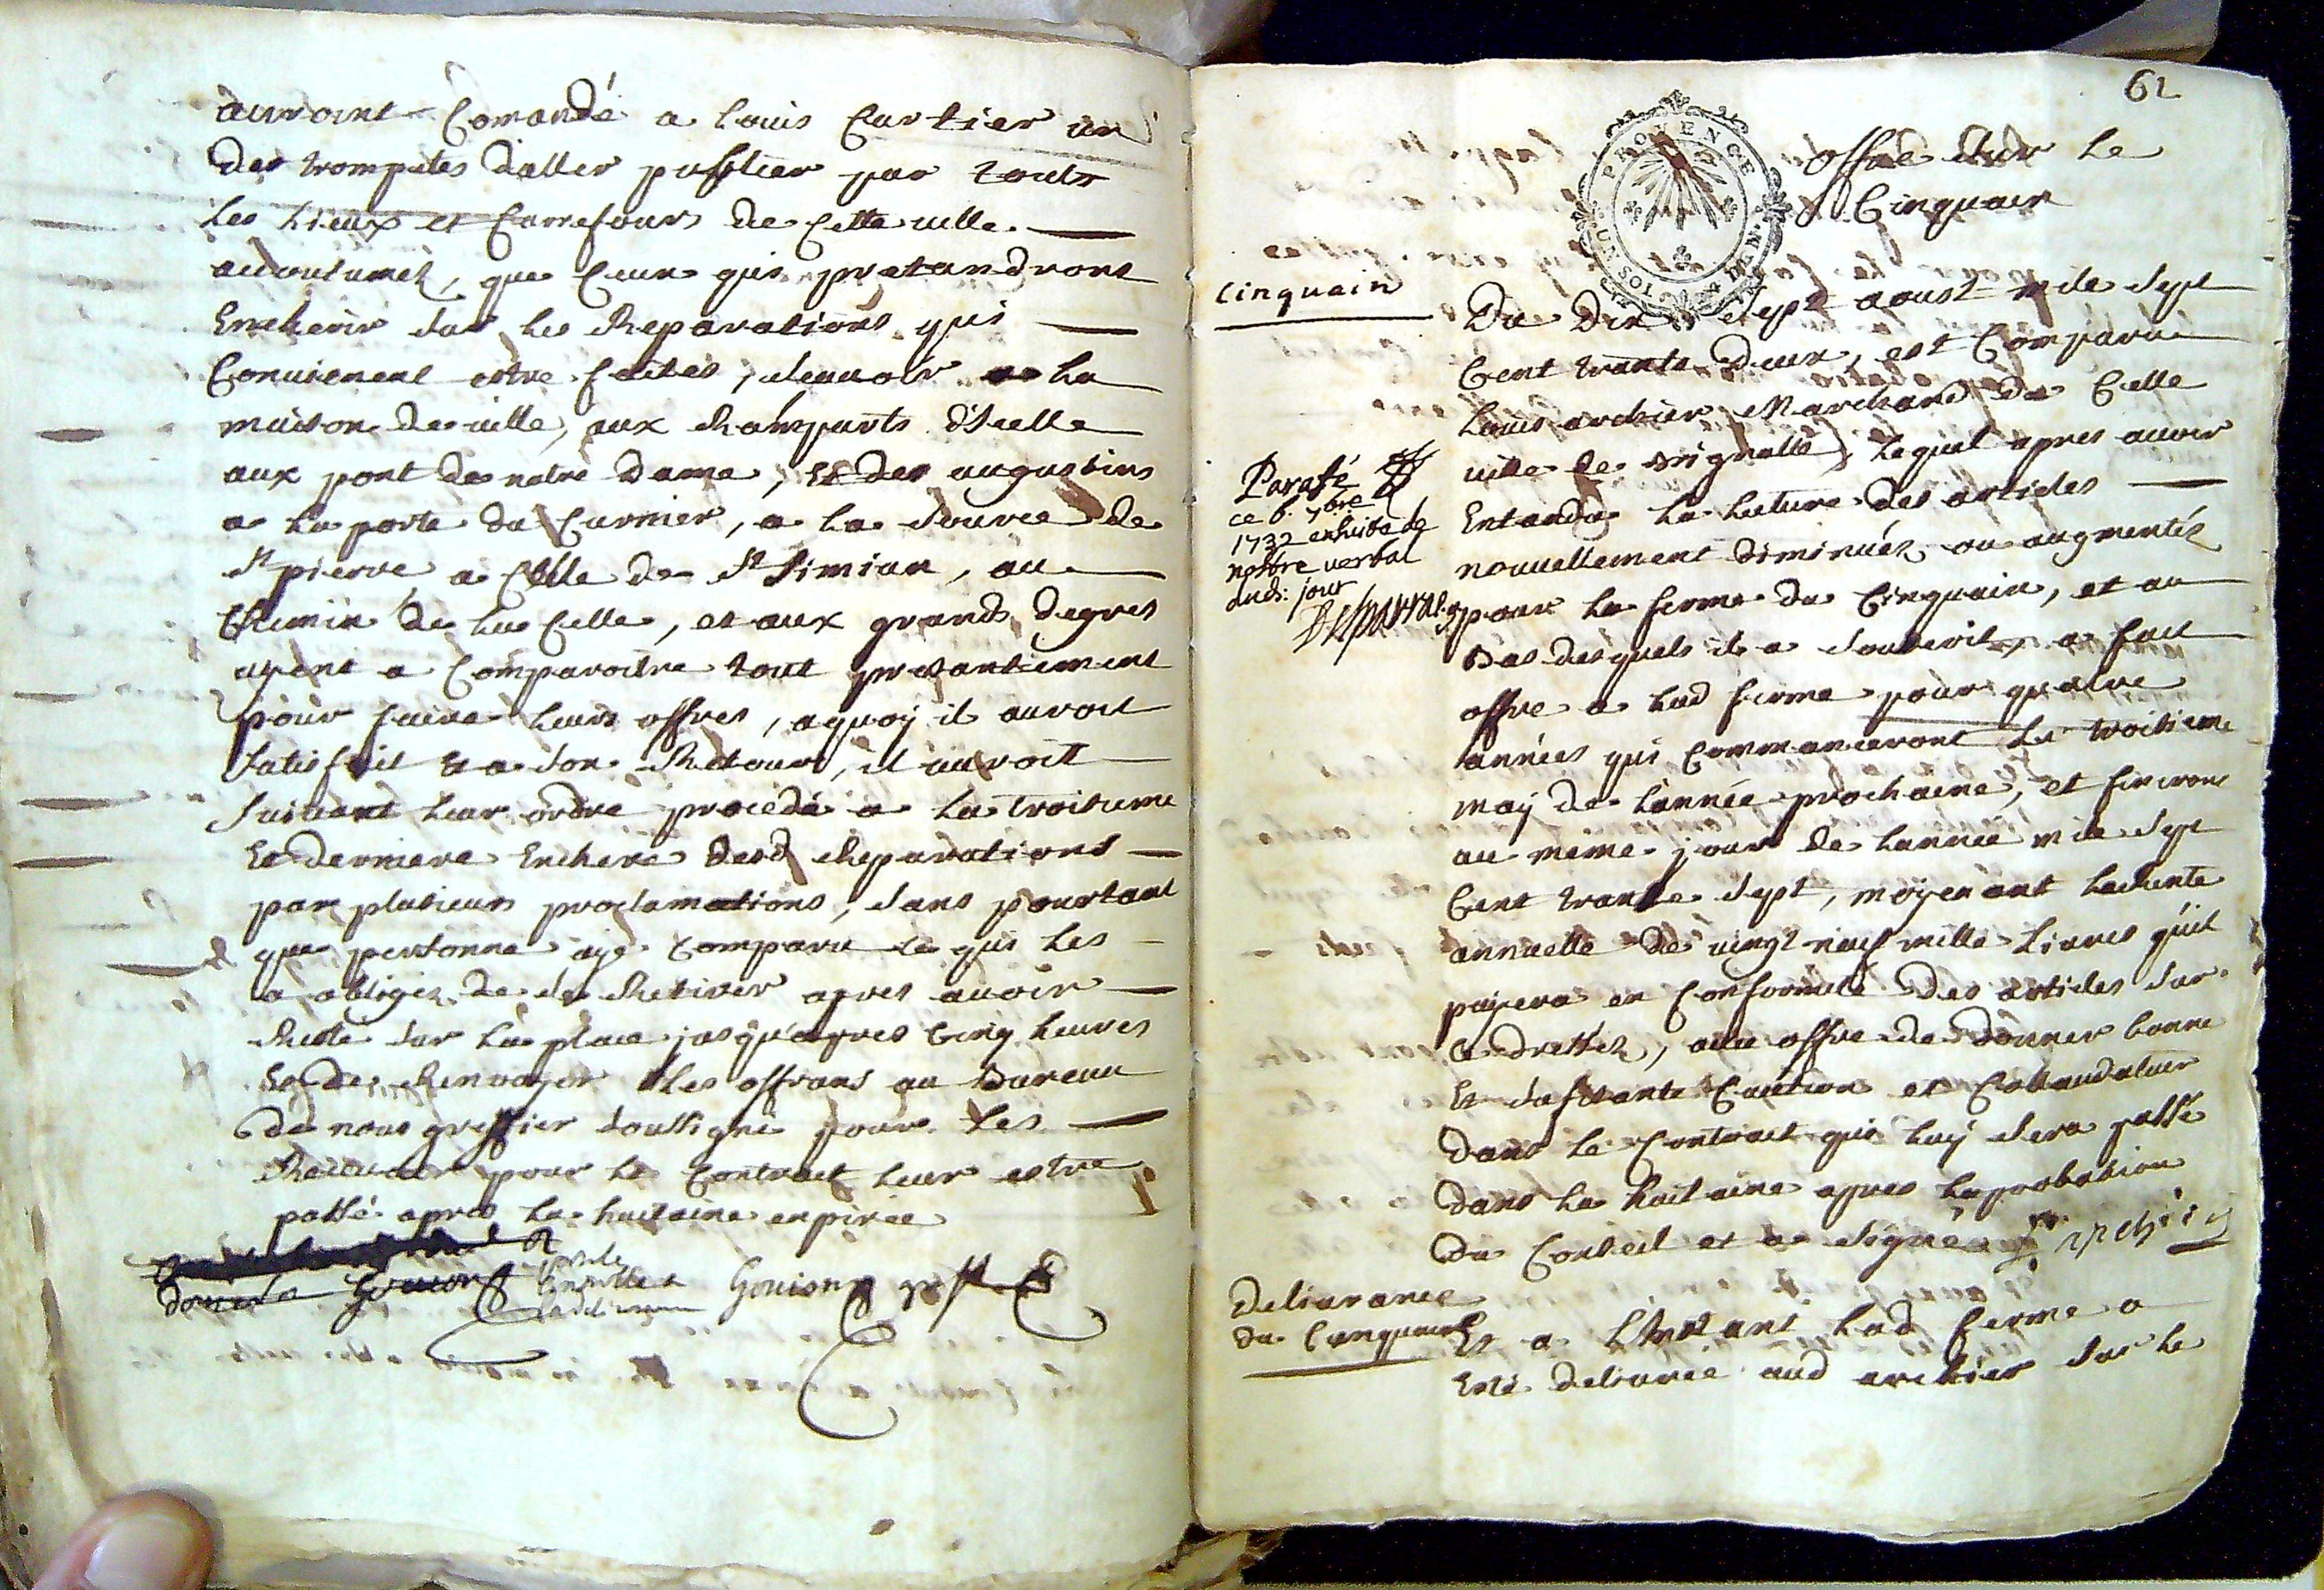 auroint Comandé a Louis Cartier un
des trompetes daller publier par touts
les Lieux et Carrefours de Cette uille
accoutumés, que Ceux qui pretandront
Encherir sur les Reparations qui
Conuienent estre faites, scauoir a la
maison de uille, aux Ramparts d'Icelle
aux pont de notre Dame, Et des augustins
a la porte du Curnier, a la source de
St pierre a Celle de St Simian, au
Chemin de la Celle, et aux grands degres
ayent a Comparoitre tout presantement
pour faire leurs offres, aquoy il auroit
satisfait Et a son Retour, il auroit
suiuant leur ordre procedé a la troisieme
Et derniere Enchere desd Reparations
par plusieurs proclamations, sans pourtant
que personne aye Comparu Ce qui les
a obliges de se Retirer apres auoir
Resté sur la place jusqu'apres Cinq heures
Et de Renvoyer les offrans au Bureau
de nous greffier soussigné pour les
Receuoir pour le Contract leur estre
passé apres la huitaine enpirée
Gouion greff
62
PROVENCE
UN SOL
DEN
offre sur le
Cinquain
Cinquain
Du Dix sept aoust mile sept
Cent trante deux, est Comparu
Louis archier Marchand de Cette
uille de Brignolle, Lequel apres auoir
Entandu la lecture des articles
nouuellement diminués ou augmentés
pour la ferme du Cinquain, et au
Bas desquels il a souscrit, a fait
offre a lad ferme pour quatre
années qui Commanceront le troisieme
may de l'année prochaine, et finiront
au même jour de lannée mile sept
Cent trante sept, moyenant la Rente
annuelle de uingt neuf mille Liures qu'il
payera en Conformité des articles sur
Ce dressés, auec offre de donner bonne
Et sufisante Caution et Collaudateur
dans le Contract qui luy sera passé
dans la huitaine apres laprobation
du Conseil et a signé
Parafé
ce 6. 7bre
1732 exhibé de
nostre verbal
dud: jour
Deliurance
du Cinquain
Et a L'Instant lad ferme a
Eté deliurée aud archier sur le